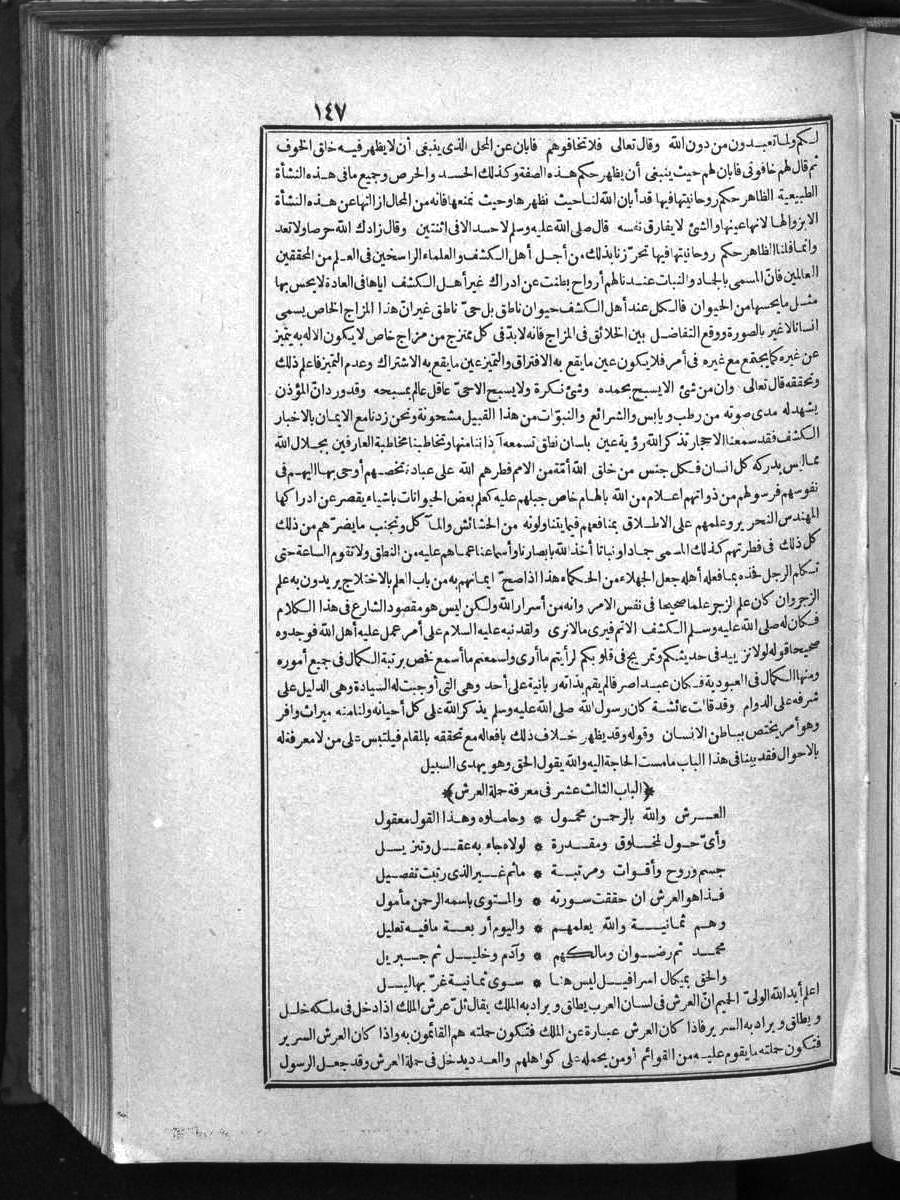 ١٤٧
لكم ولما تعبدون من دون الله وقال تعالى فلا تخافوهم فابان عن المحل الذى ينبغى أن لا يظهر فيه خلق الخوف
ثم قال لهم خافونى فابان لهم حيث ينبغى أن يظهر حكم هذه الصفة وكذلك الحسد والحرص وجميع ما فى هذه النشأة
الطبيعية الظاهر حكم روحانيتها فيها قد أبان الله لنا حيث نظهرها وحيث نمنعها فانه من المحال ازالتها عن هذه النشأة
الا بزوالها لانها عينها والشئ لا يفارق نفسه قال صلى الله عليه وسلم لا حسد الا فى اثنتين وقال زادك الله حرصا ولا تعد
وانما قلنا الظاهر حكم روحانيتها فيها تحرّزنا بذلك من أجل أهل الكشف والعلماء الراسخين فى العلم من المحققين
العالمين فانّ المسمى بالجماد والنبات عندنا لهم أرواح بطنت عن ادراك غير أهل الكشف اياها فى العادة لا يحس بها
مثل ما يحسها من الحيوان فالكل عند أهل الكشف حيوان ناطق بل حىّ ناطق غير انّ هذا المزاج الخاص يسمى
انسانا لا غير بالصورة ووقع التفاضل بين الخلائق فى المزاج فانه لا بدّ فى كل ممتزج من مزاج خاص لا يكون الا له به يتميز
عن غيره كما يجتمع مع غيره فى أمر فلا يكون عين ما يقع به الافتراق والتميز عين ما يقع به الاشتراك وعدم التميز فاعلم ذلك
وتحققه قال تعالى وان من شئ الا يسبح بحمده وشئ نكرة ولا يسبح الا حىّ عاقل عالم بمسبحه وقد ورد انّ المؤذن
يشهد له مدى صوته من رطب ويابس والشرائع والنبوّات من هذا القبيل مشحونة ونحن زدنا مع الايمان بالاخبار
الكشف فقد سمعنا الاحجار تذكر الله رؤية عين بلسان نطق تسمعه آذاننا منها وتخاطبنا مخاطبة العارفين بجلال الله
مما ليس يدركه كل انسان فكل جنس من خلق الله أمّة من الامم فطرهم الله على عبادة تخصهم أوحى بها اليهم فى
نفوسهم فرسولهم من ذواتهم اعلام من الله بالهام خاص جبلهم عليه كعلم بعض الحيوانات باشياء يقصر عن ادراكها
المهندس النحرير وعلمهم على الاطلاق بمنافعهم فيما يتناولونه من الحشائش والمآكل وتجنب ما يضرّهم من ذلك
كل ذلك فى فطرتهم كذلك المسمى جمادا ونباتا أخذ الله بابصارنا وأسماعنا عما هم عليه من النطق ولا تقوم الساعة حتى
تكلم الرجل فخذه بما فعله أهله جعل الجهلاء من الحكماء هذا اذا صح ايمانهم به من باب العلم بالاختلاج يريدون به علم
الزجر وان كان علم الزجر علما صحيحا فى نفس الامر وانه من أسرار الله ولكن ليس هو مقصود الشارع فى هذا الكلام
فكان له صلى الله عليه وسلم الكشف الاتم فيرى ما لا نرى ولقد نبه عليه السلام على أمر عمل عليه أهل الله فوجدوه
صحيحا قوله لولا تزييد فى حديثكم وتمريج فى قلوبكم لرأيتم ما أرى ولسمعتم ما أسمع فخص برتبة الكمال فى جميع أموره
ومنها الكمال فى العبودية فكان عبدا صرفا لم يقم بذاته ربانية على أحد وهى التى أوجبت له السيادة وهى الدليل على
شرفه على الدوام وقد قالت عائشة كان رسول الله صلى الله عليه وسلم يذكر الله على كل أحيانه ولنا منه ميراث وافر
وهو أمر يختص بباطن الانسان وقوله وقد يظهر خلاف ذلك بافعاله مع تحققه بالمقام فيلتبس على من لا معرفة له
بالاحوال فقد بينا فى هذا الباب ما مست الحاجة اليه والله يقول الحق وهو يهدى السبيل
﴿الباب الثالث عشر فى معرفة حملة العرش﴾
العرش والله بالرحمن محمول * وحاملوه وهذا القول معقول
وأىّ حول لمخلوق ومقدرة * لولاه جاء به عقل وتنزيل
جسم وروح وأقوات ومرتبة * ما ثم غير الذى رتبت تفصيل
فذا هو العرش ان حققت سورته * والمستوى باسمه الرحمن مأمول
وهم ثمانية والله يعلمهم * واليوم أربعة ما فيه تعليل
محمد ثم رضوان ومالكهم * وآدم وخليل ثم جبريل
والحق بميكال اسرافيل ليس هنا * سوى ثمانية غرّ بهاليل
اعلم أيد الله الولىّ الحميم انّ العرش فى لسان العرب يطلق ويراد به الملك يقال ثلّ عرش الملك اذا دخل فى ملكه خلل
ويطلق ويراد به السرير فاذا كان العرش عبارة عن الملك فتكون حملته هم القائمون به واذا كان العرش السرير
فتكون حملته ما يقوم عليه من القوائم أو من يحمله على كواهلهم والعدد يدخل فى حملة العرش وقد جعل الرسول